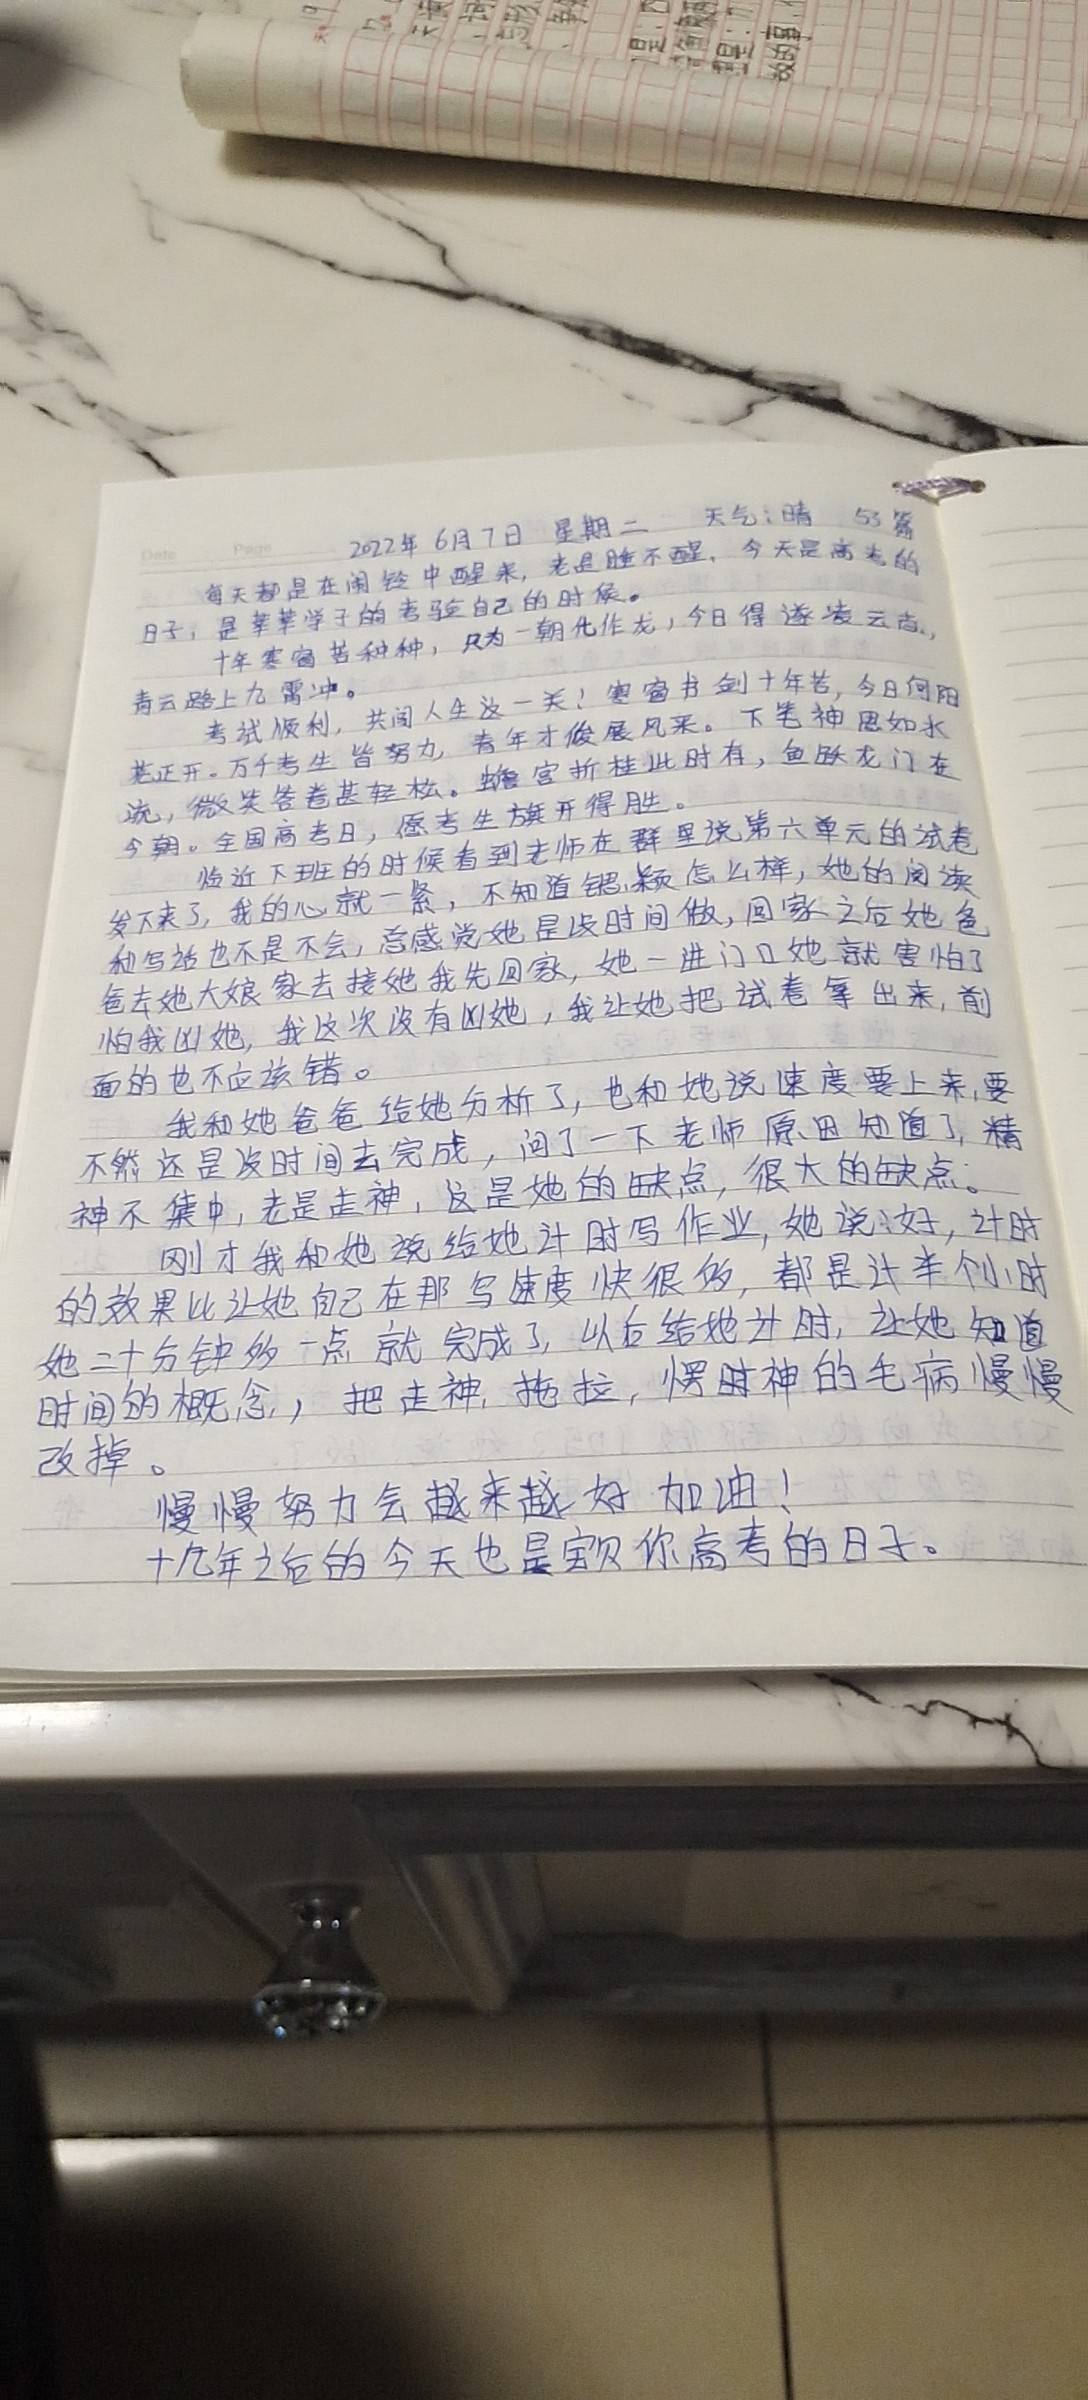 Date Page
2022年 6月7日 星期二 天气:晴 53篇
每天都是在闹铃中醒来，老是睡不醒，今天是高考的
日子，是莘莘学子的考验自己的时候。
十年寒窗苦种种，只为一朝化作龙，今日得遂凌云志，
青云路上九霄冲。
考试顺利，共闯人生这一关！寒窗书剑十年苦，今日向阳
花正开。万千考生皆努力，青年才俊展风采。下笔神思如水
流，微笑答卷甚轻松。蟾宫折桂此时存，鱼跃龙门在
今朝。全国高考日，愿考生旗开得胜。
临近下班的时候看到老师在群里说第六单元的试卷
发下来了，我的心就一紧，不知道锶颖怎么样，她的阅读
和写话也不是不会，总感觉她是没时间做，回家之后她爸
爸去她大娘家去接她我先回家，她一进门口她就害怕了
怕我凶她，我这次没有凶她，我让她把试卷拿出来，前
面的也不应该错。
我和她爸爸给她分析了，也和她说速度要上来，要
不然还是没时间去完成，问了一下老师原因知道了，精
神不集中，老是走神，这是她的缺点，很大的缺点。
刚才我和她说给她计时写作业，她说：好，计时
的效果比让她自己在那写速度快很多，都是计半个小时
她二十分钟多一点就完成了，以后给她计时，让她知道
时间的概念，把走神，拖拉，愣神的毛病慢慢
改掉。
慢慢努力会越来越好加油！
十九年之后的今天也是宝贝你高考的日子。